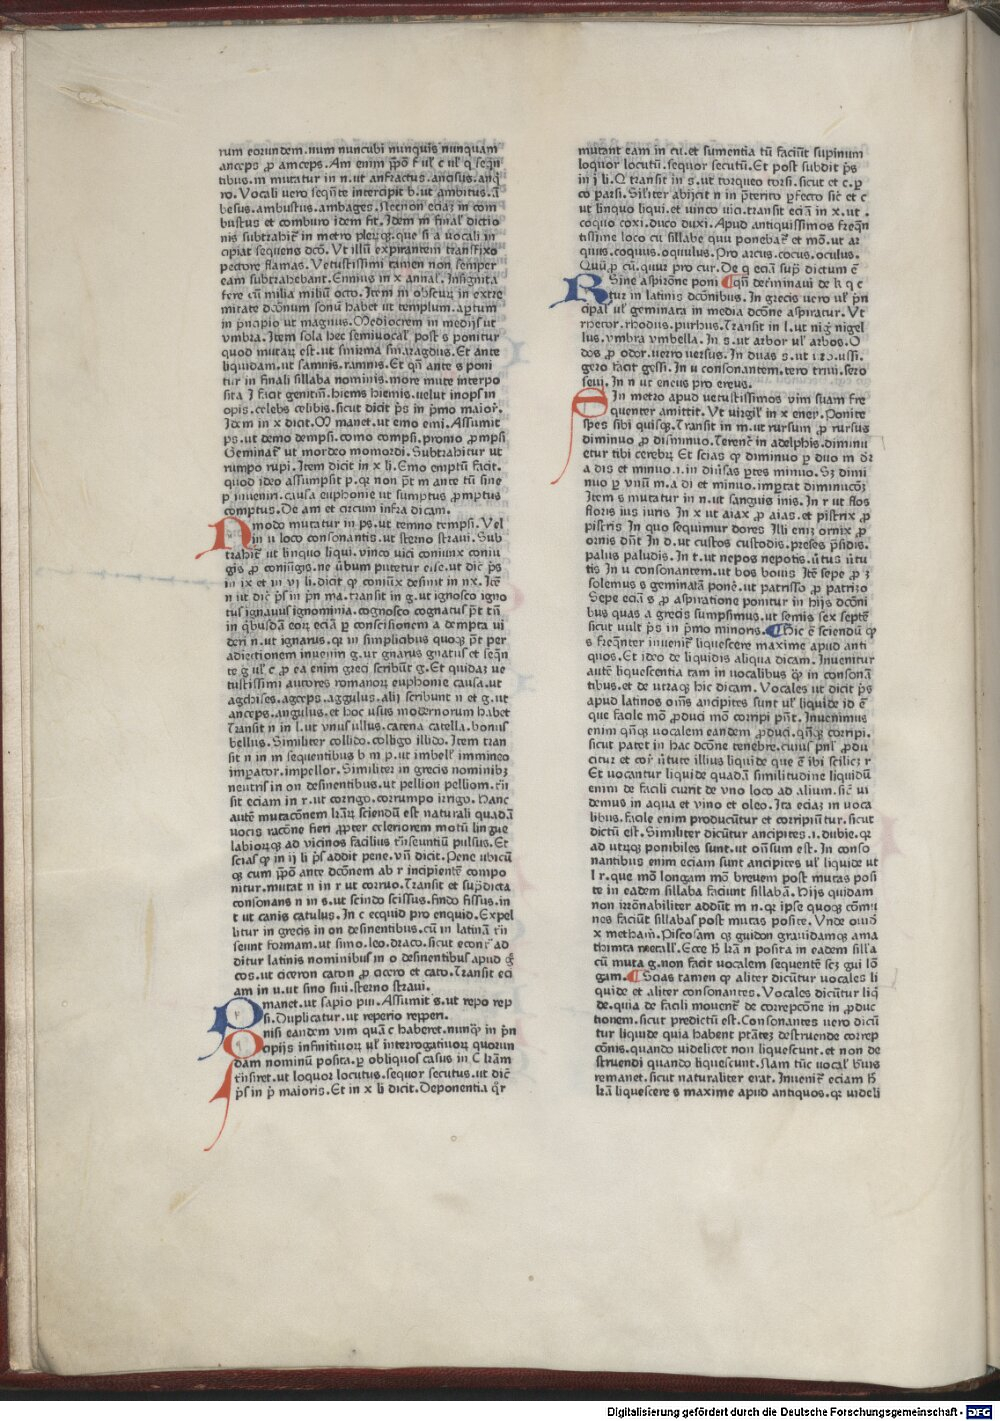 rum eorundem.num nuncubi nunquis nunquam
anceps ꝓ amceps.Am enim p̄pōͥ f ul̓ c ul̓ q seqn̄
tibus.m mutatur in n.ut anfractus.ancisus.anq̄
ro.Vocali uero seqn̄te intercipit b.ut ambitus.ā
besus.ambustus.ambages.Necnon eciaz in com
bustus et comburo idem fit.Idem m final̓ dictio
nis subtrahit̓ in metro pleꝝqꝫ.que si a uocali in
cipiat sequens dcō.Vt illū expirantem transfixo
pectore flamas.Vetustissimi tamen non semper
eam subtrahebant.Ennius in x annal̓.Insignita
fere cū milia miliū octo.Item m obscuꝝ in extre
mitate dcōnum sonū habet ut templum.aptum
in p̄ncipio ut magnus.Mediocrem in medijs ut
vmbra.Item sola hec semiuocal̓ post s ponitur
quod mutaꝝ est.ut smirma smaragdus.Et ante
liquidam.ut samnis.ramnis.Et qn̄ ante s poni
tur in finali sillaba nominis.more mute interpo
sita I facit genitm̄.hiems hiemis.uelut inops in
opis.celebs celibis.sicut dicit p̄s in p̄mo maioꝝ.
Idem in x dicit.M manet.ut emo emi.Assumit
ps.ut demo dempsi.como compsi.promo ꝓmpsi
Geminat̓ ut mordeo momordi.Subtrahitur ut
rumpo rupi.Item dicit in x li.Emo emptū facit.
quod ideo assumpsit p.qꝛ non pt̄ m ante tū sine
p inueniri.causa euphonie ut sumptus ꝓmptus
comptus.De am et circum infra dicam.
N modo mutatur in ps.ut temno tempsi.Vel
in u loco consonantis.ut sterno straui.Sub
trahit̓ ut linquo liqui.vinco uici coniunx coniu
gis ꝓ coniūgis.ne ūbum putetur esse.ut dic̄ p̄s
in ix et in vj li.dicit qꝫ coniūx desinit in nx.Itē
n ut dic̄ p̄s in p̄n ma.transit in g.ut ignosco igno
tus ignauus ignominia.cognosco cognatus pt̄ tn̄
in qͥbusdā eoꝝ eciā ꝑ conscisionem a dempta ui
deri n.ut ignarus.qꝛ in simplicibus quoqꝫ pt̄ per
adiectionem inueniri g.ut gnarus gnatus et seqn̄
te g ul̓ c ꝓ ea enim greci scribūt g.Et quidaz ue
tustissimi autores romanoꝝ euphonie causa.ut
agchises.agceps.aggulus.alij scribunt n et g.ut
anceps.angulus.et hoc usus modernorum habet
Transit n in l.ut vnus ullus.catena catella.bonus
bellus.Similiter collido.colligo illido.Item tran
sit n in m sequentibus b m p.ut imbell̓ immineo
imꝑator.impellor.Similiter in grecis nominibꝫ
neutris in on desinentibus.ut pellion pelliom.tn̄
sit eciam in r.ut corrigo.corrumpo irrigo.Hanc
autē mutacōnem lr̄aꝝ sciendū est naturali quadā
uocis racōne fieri ꝓpter celeriorem motū lingue
labioꝝqꝫ ad vicinos facilius trn̄seuntiū pulsus.Et
scias qꝫ in ij li p̄s addit pene.vn̄ dicit.Pene ubicū
qꝫ cum p̄pōͥ ante dcōnem ab r incipientē compo
nitur.mutat n in r ut corruo.Transit et sup̄dicta
consonans n in s.ut scindo scissus.findo fissus.in
t ut canis catulus.In c ecquid pro enquid.Expel
litur in grecis in on desinentibus.cū in latinā tn̄
seunt formam.ut simo.leo.draco.sicut econꝭ ad
ditur latinis nominibus in o desinentibus apud gͤ
cos.ut ciceron caton ꝓ cicero et cato.Transit eci
am in u.ut sino siui.sterno straui.
P manet.ut sapio pui.Assumit s.ut repo rep
si.Duplicatur.ut reperio repperi.
Q nisi eandem vim quā c haberet.nunqͣ in p̄n
cipijs infinitiuoꝝ ul̓ interrogatiuoꝝ quorun
dam nominū posita.ꝑ obliquos casus in C lr̄am
trn̄siret.ut loquor locutus.sequor secutus.ut dic̄
p̄s in p̄ maioris.Et in x li dicit.Deponentia qͥr
mutant eam in cu.et sumentia tū faciūt supinum
loquor locutū.sequor secutū.Et post subdit p̄s
in j li.Q transit in s.ut torqueo torsi.sicut et c.ꝑ
co parsi.Siliter abijcit n in p̄terito ꝑfecto sic̄ et c
ut linquo liqui.et uinco uici.transit eciā in x.ut .
coquo coxi.duco duxi.Apud antiquissimos freqn̄
tissime loco cu sillabe quu ponebat̓ et mō.ut ar
quus.coquus.oquulus.Pro arcus.cocus.oculus.
Quū ꝓ cū.quur pro cur.De q eciā sup̄ dictum ē
R Sine aspirōne poni ¶qn̄ det̓minaui de k q c
tur in latinis dcōnibus.In grecis uero ul̓ p̄n
cipal̓ ul̓ geminata in media dcōne aspiratur.Vt
rhetor.rhodus.pirhus.Transit in l.ut nigꝭ nigel
lus.vmbra vmbella.In s.ut arbor ul̓ arbos.O
dos ꝓ odor.uerro uersus.In duas s.ut uro.ussi.
gero facit gessi.In u consonantem.tero triui.sero
seui.In n ut eneus pro ereus.
S In metro apud uetustissimos vim suam fre
quenter amittit.Vt virgil̓ in x eney.Ponite
spes sibi quisqꝫ.Transit in m.ut rursum ꝓ rursus
diminuo ꝓ disminuo.Terenc̄ in adelphis.diminu
etur tibi cerebꝝ Et scias qꝫ diminuo ꝑ duo m dr̄
a dis et minuo.i.in diūsas ꝑtes minuo.Sꝫ dimi
nuo ꝑ vnū m.a di et minuo.imꝑtat diminucōꝫ
Item s mutatur in n.ut sanguis inis.In r ut flos
floris ius iuris In x ut aiax ꝓ aias.et pistrix ꝓ
pistris In quo sequimur dores Illi eniz ornix ꝓ
ornis dn̄t In d.ut custos custodis.preses p̄sidis.
palus paludis.In t.ut nepos nepotis.ūtus ūtu
tis In u consonantem.ut bos bouis Itē sepe ꝓ ȝ
solemus s geminatā ponē.ut patrisso ꝓ patrizo
Sepe eciā s ꝓ aspiratione ponitur in hijs dcōni
bus quas a grecis sumpsimus.ut semis sex septē
sicut uult p̄s in p̄mo minoris.¶Hic ē sciendū qꝫ
s freqn̄ter inuenit̓ liquescere maxime apud anti
quos.Et ideo de liquidis aliqua dicam.Inuenitur
autē liquescentia tam in uocalibus qͣꝫ in consonā
tibus.et de utraqꝫ hic dicam.Vocales ut dicit p̄s
apud latinos om̄s ancipites sunt ul̓ liquide id ē
que facile mō ꝓduci mō corripi pn̄t.Inuenimus
enim qn̄qꝫ uocalem eandem ꝓduci.qn̄qꝫ corripi.
sicut patet in hac dcōne tenebre.cuius pnl̓ ꝓdu
citur et corꝭ ūtute illius liquide que ē ibi scilicꝫ r
Et uocantur liquide quadā similitudine liquidū
enim de facili currit de vno loco ad alium.sic̄ ui
demus in aqua et vino et oleo.Ita eciaz in uoca
libus.facile enim producūtur et corripiūtur.sicut
dictū est.Similiter dicūtur ancipites .i.dubie.qꝛ
ad utrūqꝫ ponibiles sunt.ut on̄sum est.In conso
nantibus enim eciam sunt ancipites ul̓ liquide ut
l r.que mō longam mō breuem post mutas posi
te in eadem sillaba faciunt sillabā.Hijs quidam
non irrōnabiliter addūt m n.qꝛ ipse quoqꝫ cōmu
nes faciūt sillabas post mutas posite.Vnde ouidꝰ
x metham̄.Piscosam qꝫ guidon grauidamqꝫ ama
thunta metall̓.Ecce h̄ lr̄a n posita in eadem silla
cū muta g.non facit vocalem sequentē scꝫ gui lō
gam.¶Scias tamen qꝫ aliter dicūtur vocales li
quide et aliter consonantes.Vocales dicūtur liqͥ
de.quia de facili mouent̓ de correpcōne in ꝓduc
tionem.sicut predictū est.Consonantes uero dicū
tur liquide quia habent ptātez destruende correp
cōnis.quando uidelicet non liquescunt.et non de
struendi quando liquescunt.Nam tūc uocal̓ bͬuis
remanet.sicut naturaliter erat.Inuenit̓ eciam h̄
lr̄a liquescere s maxime apud antiquos.qꝛ uideli
Digitalisierung gefördert durch die Deutsche Forschungsgemeinschaft - DFG